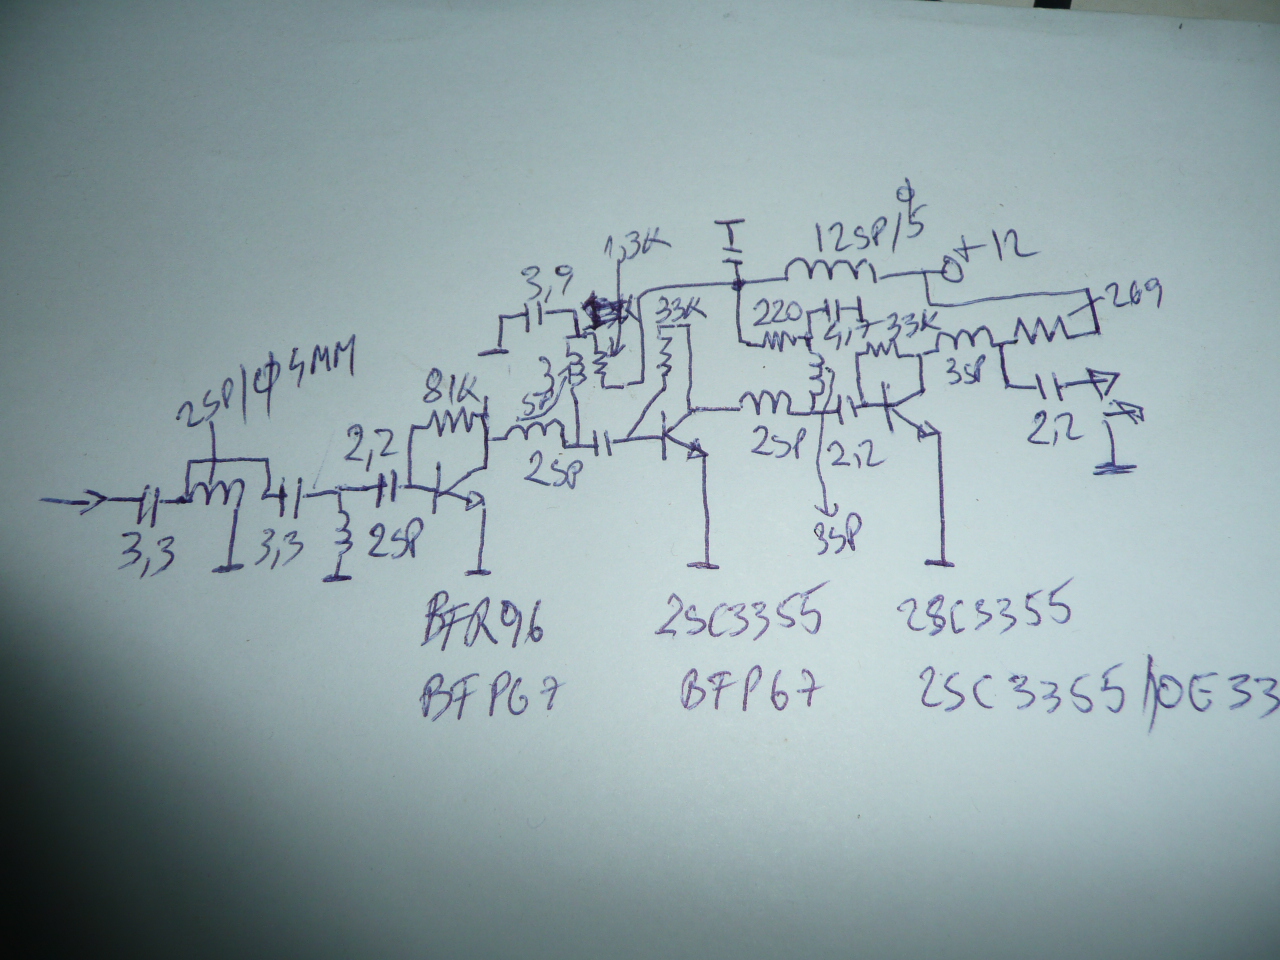 12SP/5
ϕ
+12
1,3K
3,9
33K
220
4,7
33K
269
2SP/ϕ4MM
81K
3SP
2,2
5P
2SP
2SP
2,2
2,2
3,3
3,3
2SP
3SP
BFR96
2SC3355
2SC3355
BFP67
BFP67
2SC3355/